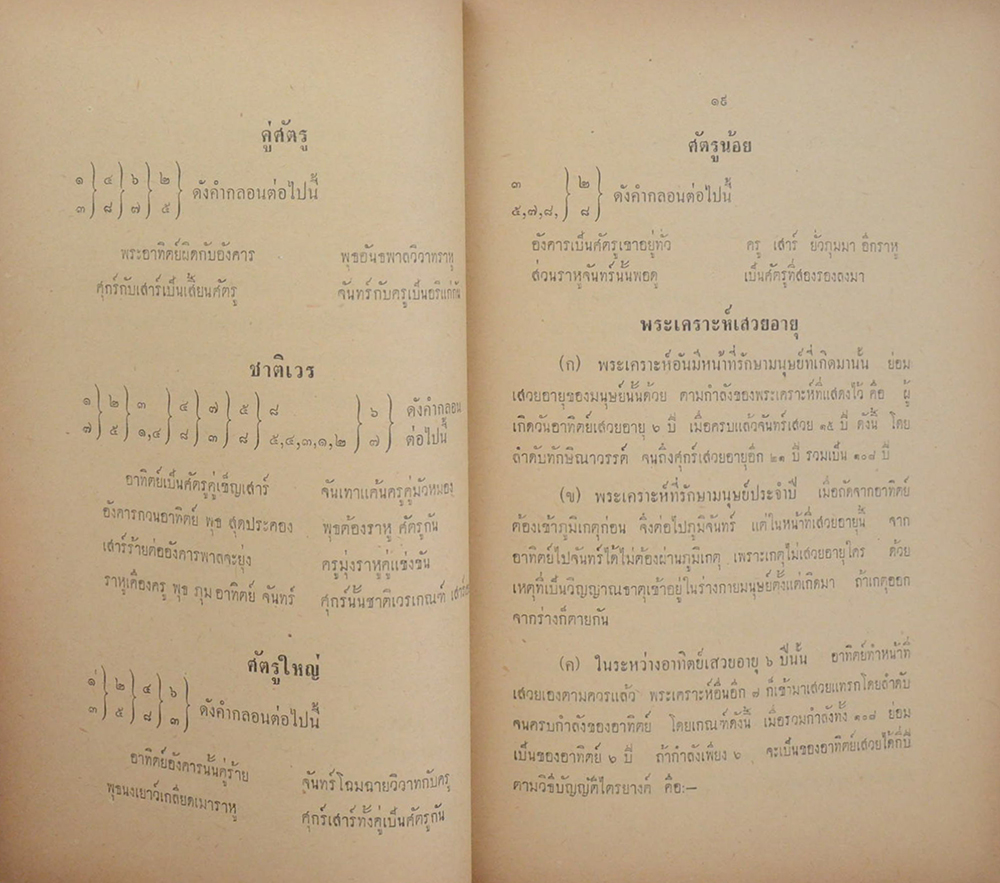 คู่ศัตรู
๑ ๔ ๖ ๒
ดังคำกลอนต่อไปนี้
๓ ๘ ๗ ๕
พระอาทิตย์ผิดกับอังคาร พุธอันธพาลวิวาทราหู
ศุกร์กับเสาร์เป็นเสี้ยนศัตรู จันทร์กับครูเป็นอริแก่กัน
ชาติเวร
๑ ๒ ๓ ๔ ๗ ๕ ๘ ๖ ดังคำกลอน
๗ ๕ ๑,๔ ๘ ๓ ๘ ๕,๔,๓,๑,๒ ๗ ต่อไปนี้
อาทิตย์เป็นศัตรูคู่เข็ญเสาร์ จันเทาแค้นครูคู่มัวหมอง
อังคารกวนอาทิตย์ พุธ สุดประคอง พุธต้องราหู ศัตรูกัน
เสาร์ร้ายต่ออังคารพาลจะยุ่ง ครูมุ่งราหูคู่แข่งขัน
ราหูเคืองครู พุธ ภุม อาทิตย์ จันทร์ ศุกร์นั้นชาติเวรเกณฑ์
ศัตรูใหญ่
๑ ๒ ๔ ๖
ดังคำกลอนต่อไปนี้
๓ ๕ ๘ ๓
อาทิตย์อังคารนั้นคู่ร้าย จันทร์โฉมฉายวิวาทกับครู
พุธนงเยาว์เกลียดเมาราหู ศุกร์เสาร์ทั้งคู่เป็นศัตรูกัน
๑๙
ศัตรูน้อย
๓ ๒
ดังคำกลอนต่อไปนี้
๕,๗,๘, ๘
อังคารเป็นศัตรูเขาอยู่ทั่ว ครู เสาร์ ยั่วกุมมา อีกราหู
ส่วนราหูจันทร์นั้นพอดู เป็นศัตรูที่สองรองลงมา
พระเคราะห์เสวยอายุ
(ก) พระเคราะห์อันมีหน้าที่รักษามนุษย์ที่เกิดมานั้น ย่อม
เสวยอายุของมนุษย์นั้นด้วย ตามกำลังของพระเคราะห์ที่แสดงไว้ คือ ผู้
เกิดวันอาทิตย์เสวยอายุ ๖ ปี เมื่อครบแล้วจันทร์เสวย ๑๕ ปี ดังนี้ โดย
ลำดับทักษิณาวรรต์ จนถึงศุกร์เสวยอายุอีก ๒๑ ปี รวมเป็น ๑๐๘ ปี
(ข) พระเคราะห์ที่รักษามนุษย์ประจำปี เมื่อถัดจากอาทิตย์
ต้องเข้าภูมิเกตุก่อน จึงต่อไปภูมิจันทร์ แต่ในหน้าที่เสวยอายุนี้ จาก
อาทิตย์ไปจันทร์ได้ไม่ต้องผ่านภูมิเกตุ เพราะเกตุไม่เสวยอายุใคร ด้วย
เหตุที่เป็นวิญญาณธาตุเข้าอยู่ในร่างกายมนุษย์ตั้งแต่เกิดมา ถ้าเกตุออก
จากร่างก็ตายกัน
(ค) ในระหว่างอาทิตย์เสวยอายุ ๖ ปีนั้น อาทิตย์ทำหน้าที่
เสวยเองตามควรแล้ว พระเคราะห์อื่นอีก ๗ ก็เข้ามาเสวยแทรกโดยลำดับ
จนครบกำลังของอาทิตย์ โดยเกณฑ์ดังนี้ เมื่อรวมกำลังทั้ง ๑๐๘ ย่อม
เป็นของอาทิตย์ ๖ ปี ถ้ากำลังเพียง ๖ จะเป็นของอาทิตย์เสวยได้กี่ปี
ตามวิธีบัญญัติไตรยางศ์ คือ:—